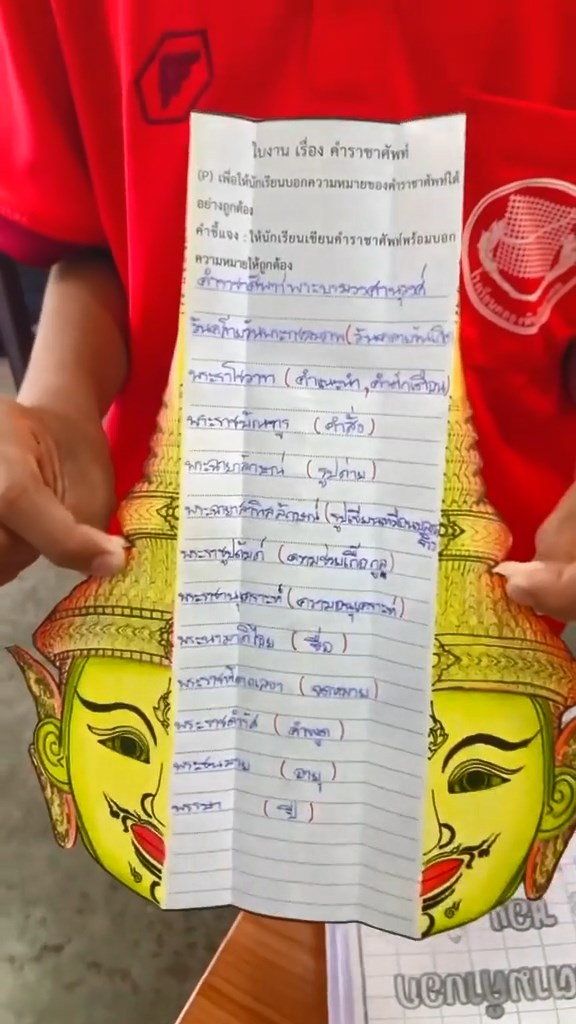 ใบงาน เรื่อง คำราชาศัพท์
(P) เพื่อให้นักเรียนบอกความหมายของคำราชาศัพท์ได้
อย่างถูกต้อง
คำชี้แจง : ให้นักเรียนเขียนคำราชาศัพท์พร้อมบอก
ความหมายให้ถูกต้อง
วันคล้ายวันพระราชสมภพ (วันคล้ายวันเกิด)
พระราโชวาท (คำแนะนำ, คำตักเตือน)
พระราชบัณฑูร (คำสั่ง)
พระฉายาลักษณ์ (รูปถ่าย)
พระฉายาสาทิสลักษณ์ (รูปเขียนเหมือน
พระราชูปถัมภ์ (ความช่วยเหลือเกื้อกูล)
พระราชานุเคราะห์ (ความอนุเคราะห์)
พระนามาภิไธย (ชื่อ)
(จดหมาย)
พระราชดำรัส (คำพูด)
พระชนมาย (อายุ)
พรรษา (ปี)